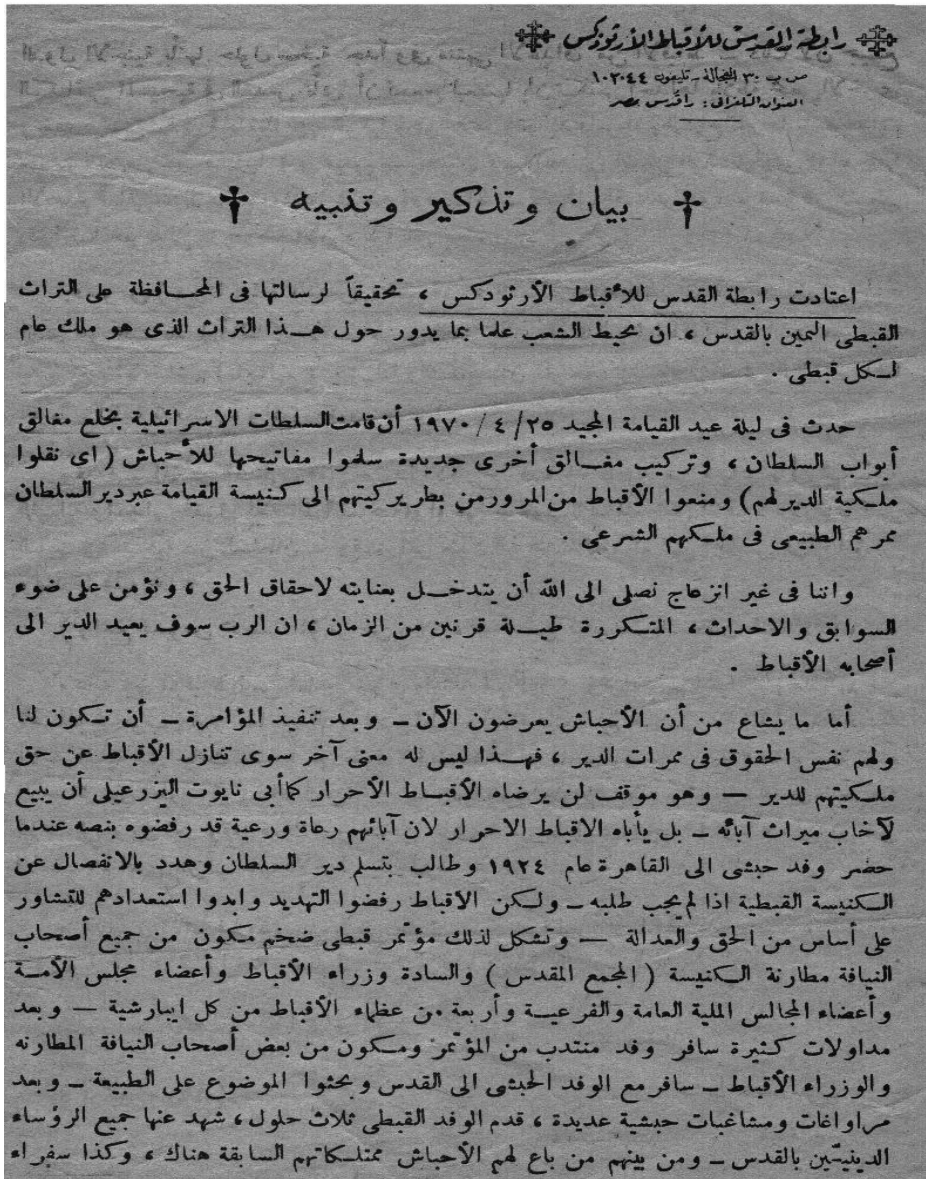 رابطة القدس للأقباط الأرثوذكس
ص ب ٣٠ الفجالة - تليفون ١٠٢٠٤٤
العنوان التلغرافى : راقدس بمصر
بيان وتذكير وتنبيه
اعتادت رابطة القدس للأقباط الأرثودكس ، تحقيقاً لرسالتها فى المحافظة على التراث
القبطى الثمين بالقدس ، ان تحيط الشعب علما بما يدور حول هذا التراث الذى هو ملك عام
لكل قبطى .
حدث فى ليلة عيد القيامة المجيد ٢٥ / ٤ / ١٩٧٠ أن قامت السلطات الاسرائيلية بخلع مغالق
أبواب السلطان ، وتركيب مغالق أخرى جديدة سلموا مفاتيحها للأحباش ( اى نقلوا
ملكية الدير لهم ) ومنعوا الأقباط من المرور من بطريركيتهم الى كنيسة القيامة عبر دير السلطان
ممرهم الطبيعى فى ملكهم الشرعى .
واننا فى غير انزعاج نصلى الى الله أن يتدخل بعنايته لاحقاق الحق ، ونؤمن على ضوء
السوابق والاحداث ، المتكررة طيلة قرنين من الزمان ، ان الرب سوف يعيد الدير الى
أصحابه الأقباط .
أما ما يشاع من أن الأحباش يعرضون الآن – وبعد تنفيذ المؤامرة – أن تكون لنا
ولهم نفس الحقوق فى ممرات الدير ، فهذا ليس له معنى آخر سوى تنازل الأقباط عن حق
ملكيتهم للدير – وهو موقف لن يرضاه الأقباط الأحرار كما أبى نابوت اليزرعيلى أن يبيع
لآخاب ميراث آبائه – بل يأباه الاقباط الاحرار لان آبائهم رعاة ورعية قد رفضوه بنصه عندما
حضر وفد حبشى الى القاهرة عام ١٩٢٤ وطالب بتسلم دير السلطان وهدد بالانفصال عن
الكنيسة القبطية اذا لم يجب طلبه – ولكن الأقباط رفضوا التهديد وابدوا استعدادهم للتشاور
على أساس من الحق والعدالة – وتشكل لذلك مؤتمر قبطى ضخم مكون من جميع أصحاب
النيافة مطارنة الكنيسة ( المجمع المقدس ) والسادة وزراء الأقباط وأعضاء مجلس الأمة
وأعضاء المجالس الملية العامة والفرعية وأربعة من عظماء الأقباط من كل ايبارشية – وبعد
مداولات كثيرة سافر وفد منتدب من المؤتمر ومكون من بعض أصحاب النيافة المطارنه
والوزراء الأقباط – سافر مع الوفد الحبشى الى القدس وبحثوا الموضوع على الطبيعة – وبعد
مراوغات ومشاغبات حبشية عديدة ، قدم الوفد القبطى ثلاث حلول ، شهد عنها جميع الرؤساء
الدينيّين بالقدس – ومن بينهم من باع لهم الأحباش ممتلكاتهم السابقة هناك ، وكذا سفراء